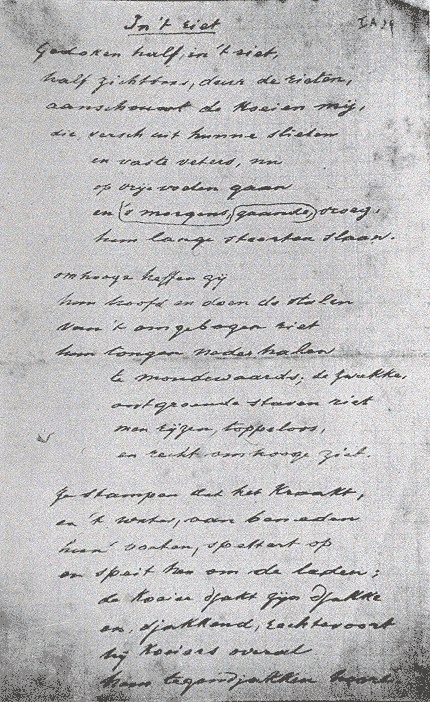 In 't riet
I A 29
Gedoken half, in 't riet,
half zichtbaar, deur de rieten,
aanschouwt de koeien mij,
die, versch uit hunne slieten
en vaste veters, nu
op vrije voeten gaan
en 's morgens, gaande, vroeg,
hun lange steerten slaan.
omhooge heffen zij
hun hoofd en doen de stalen
van 't omgebogen riet
hun tongen nederhalen
te mondewaards; de zwakke,
ontgroende staven riet
men rijzen, toppeloos,
en recht omhooge ziet.
Ze stampen dat het kraakt,
en 't water, van beneden
hun' voeten, spettert op
en speit hen om de leden;
de koeier djakt zijn djakke
en, djakkend, rechtevoort
hij koeiers overal
hem tegendjakken hoort